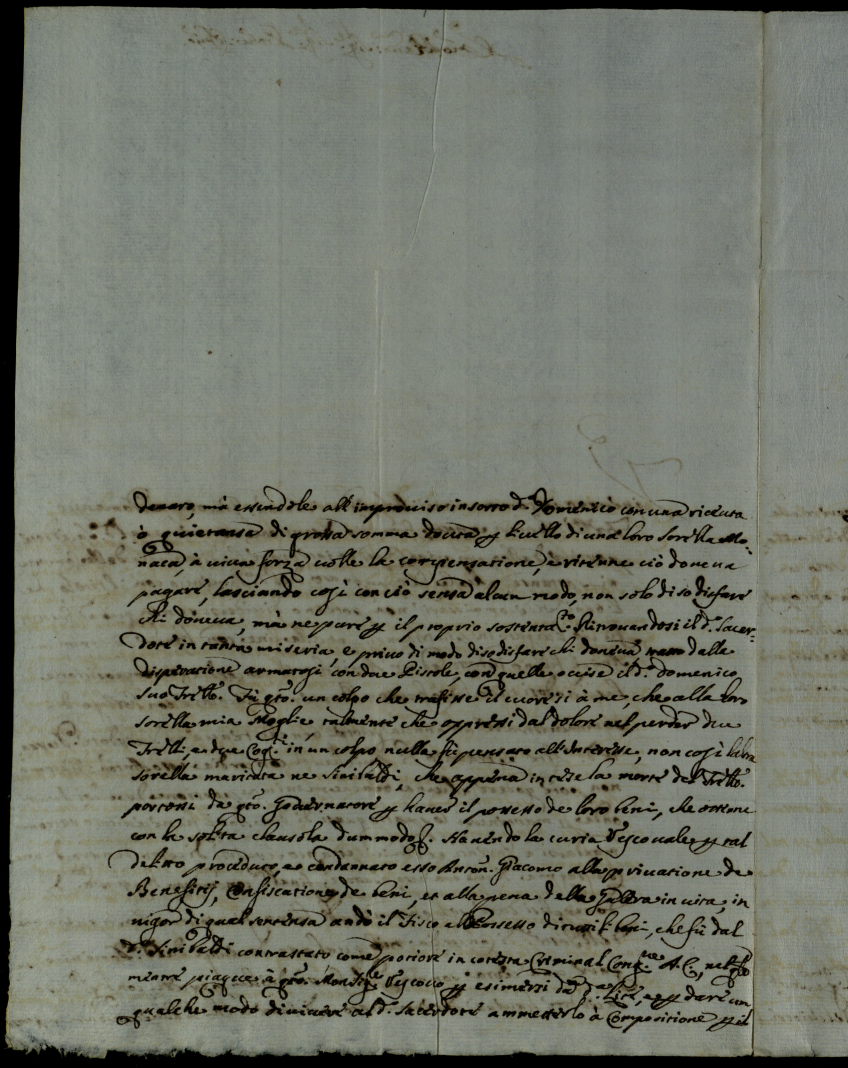 denaro, mà essendole all'improuiso insorto d.º Domenico con una riceuta
ò quietanza di grossa somma douuta p liuello di una loro sorella Mo-
naca, à uiua forza uolle la compensatione, e ritenne ciò doueua
pagare, lasciando così con ciò senza alcun modo, non solo di sodisfare
chi doueua, mà ne pure p il proprio sostentam.to Ritrouandosi il d.º Sacer-
dote in tanta miseria, e priuo di modo di sodisfare chi doueua dalla
disperatione armatosi con due Pistole, con quelle occise il d.º Domenico
suo Frello. Fù qto. un colpo che trafisse il cuore si à me, che alla loro
sorella mia Moglie, talmente che oppressi dal dolore nel perder due
Frelli, e due Cog.ti in un colpo nulla fù pensato all'Interesse, non così l'altra
sorella maritata ne Sinibaldi, che appena intese la morte del Frello.
portossi da qto. Gouernatore p hauer il possesso de loro beni, che ottene
con la solita clausola dummodo. Hauendo la curia Vescouale p tal
delitto proceduto, e condannato esso Anton. Giacomo alla priuatione de
Benefitij, Confiscatione de beni, et alla pena della Galera in uita, in
uigor di qual sentenza andò il Fisco al Possesso di beni, che fù dal
d.º Sinibaldi contrastato come potiore in cotesta Criminal Cong.ne A.C.
mentre piacque à qto. Monsig.re Vescouo p esimersi da lite, e p dare un
qualche modo di uiuere al d.º Sacerdote ammetterlo à Compositione p il